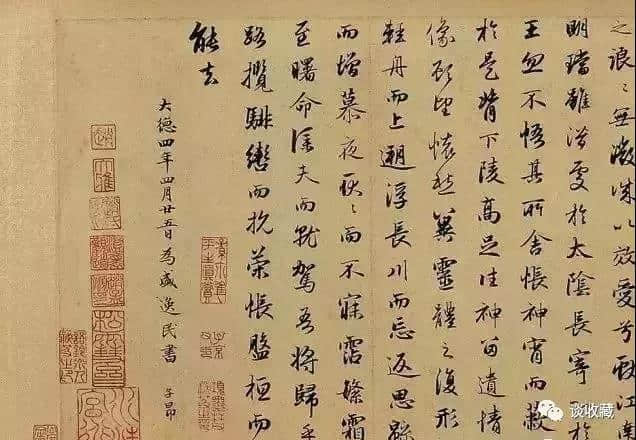 之浪〻無微誠以效愛兮獻江南
明璫雖潛處於太陰長寄於
王忽不悟其所舍悵神宵而蔽
於是背下陵高足往神留遺情
像顧望懷愁冀靈體之復形
輕舟而上遡浮長川而忘返思緜
而增慕夜耿〻而不寐霑繁霜
至曙命僕夫而就駕吾將歸乎
路攬騑轡而抗策悵盤桓而
能去
大德四年四月廿五日為盛逸民書 子昂
谈收藏